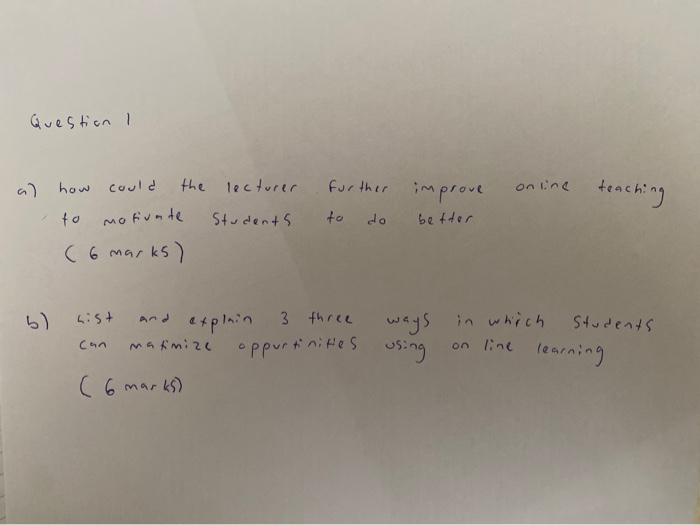 Question 1
a) how could the lecturer further improve online teaching
to motivate students to do better
(6 marks)
b) List and explain 3 three ways in which students
can maximize oppurtinities using on line learning
(6 marks)